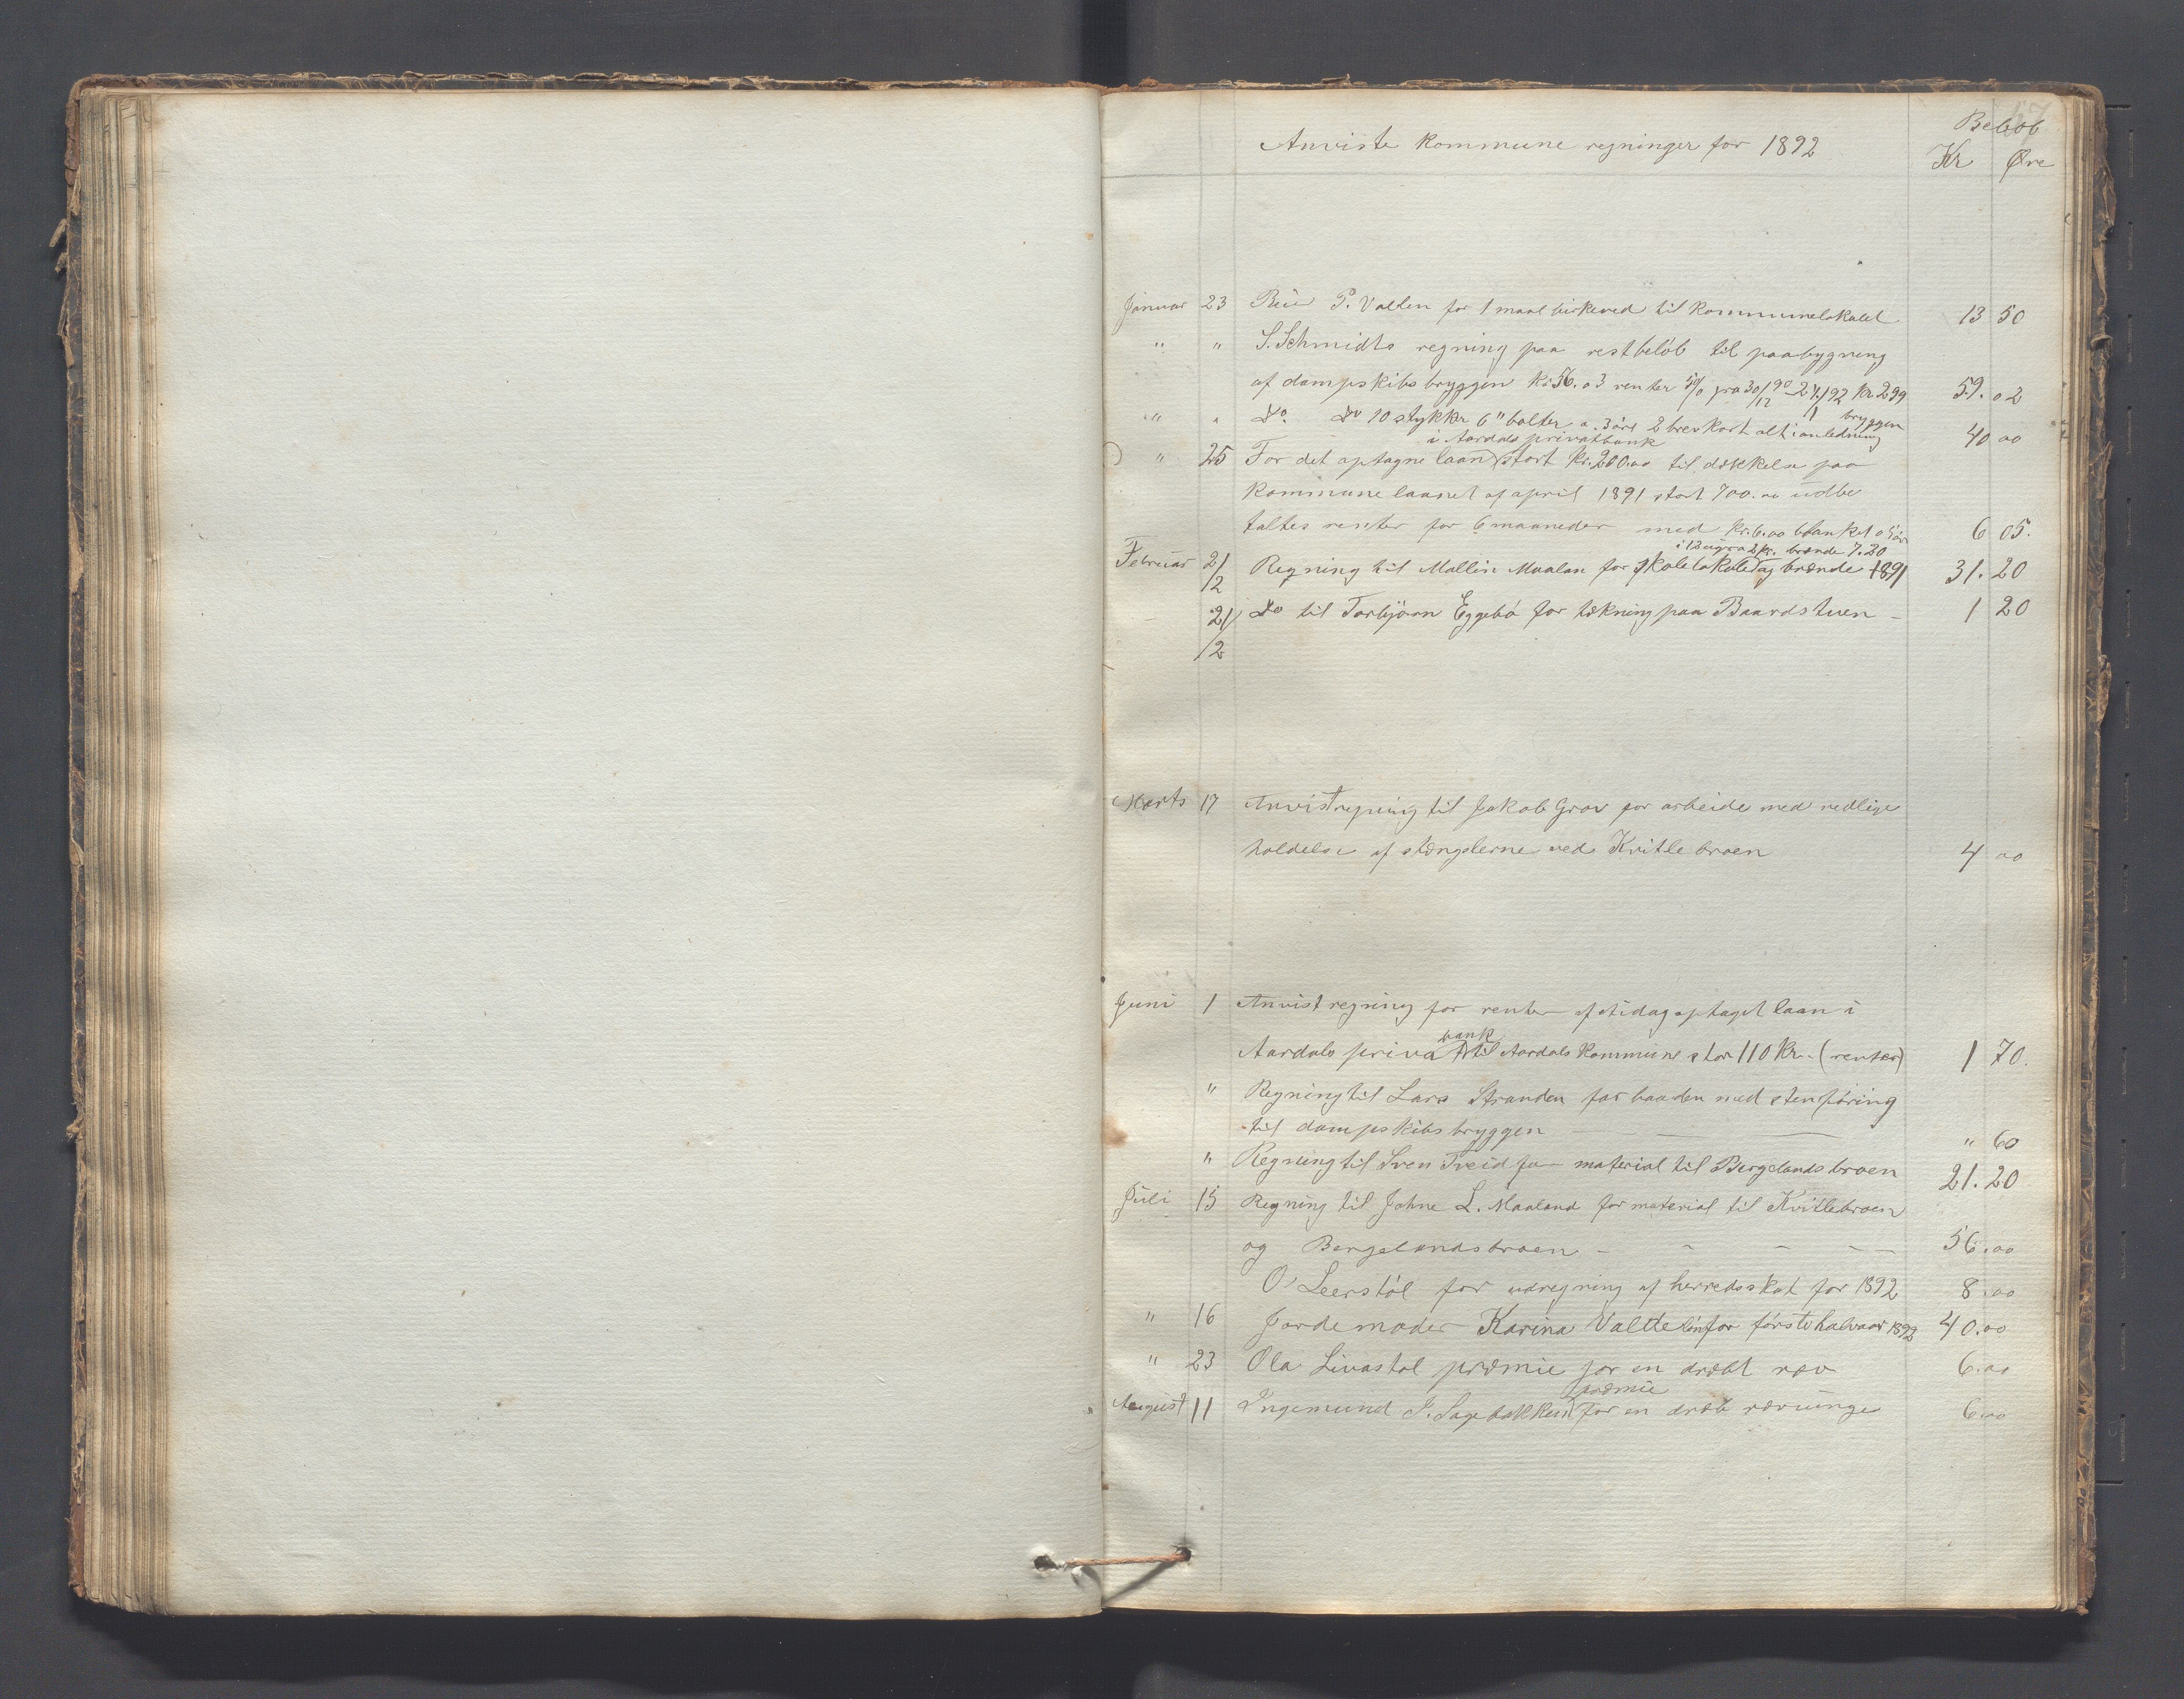 Beløb
Anviste kommune regninger for 1892 Kr Øre
Januar 23 P. Valten for 1 maal birkeved til kommunelokalet 13 50
" " S. Schmidts regning paa restbeløb til paabygning
af dampskibsbryggen kr 56.03 renter 5% fra 30/12 90 - 2 /1 92 kr 2 99 59.02
" " Do. Do 10 stykker 6" bolter a 3 øre 2 brevkort alt i anledning bryggen 40 00
i Aardals privatbank
" 25 For det optagne laan stort kr. 200.00 til dækkelse paa
kommune laanet af april 1891 stort 700.00 udbe
taltes renter for 6 maaneder med kr. 6.00 6 05.
brænde 7.20
Februar 21/2 Regning til Mallin Maalan for skolelokale og brænde 1891 31.20
21/2 Do til Torbjørn Eggebø for tækning paa Baardstuen - 1 20
Marts 17 Anvist regning til Jakob Grov for arbeide med vedlige
holdelse af stængslerne ved Kvitlebroen 4 00
Juni 1 Anvist regning for renter af idag optaget laan i
bank
Aardals privat til Aardals kommune stor 110 Kr. (renter) 1 70.
" Regning til Lars Stranden for baaden med stenføring
til dampskibsbryggen " 60
" Regning til Sven Tveid for material til Bergelandsbroen 21.20
Juli 15 Regning til Johne L. Maaland for material til Kvitlebroen
og Bergelandsbroen - - - - 56.00
O. Leerstøl for udregning af herredsskat for 1892 8.00
" 16 Jordemoder Karina Valde løn for første halvaar 1892 40.00
" 23 Ola Livastøl præmie for en dræbt ræv 6.00
præmie
August 11 Ingemund J. Sagebakken for en dræbt rævunge 6.00